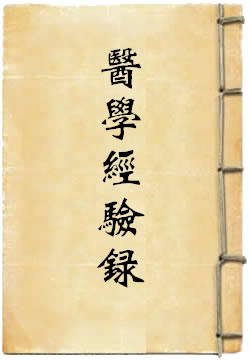 醫學經驗録